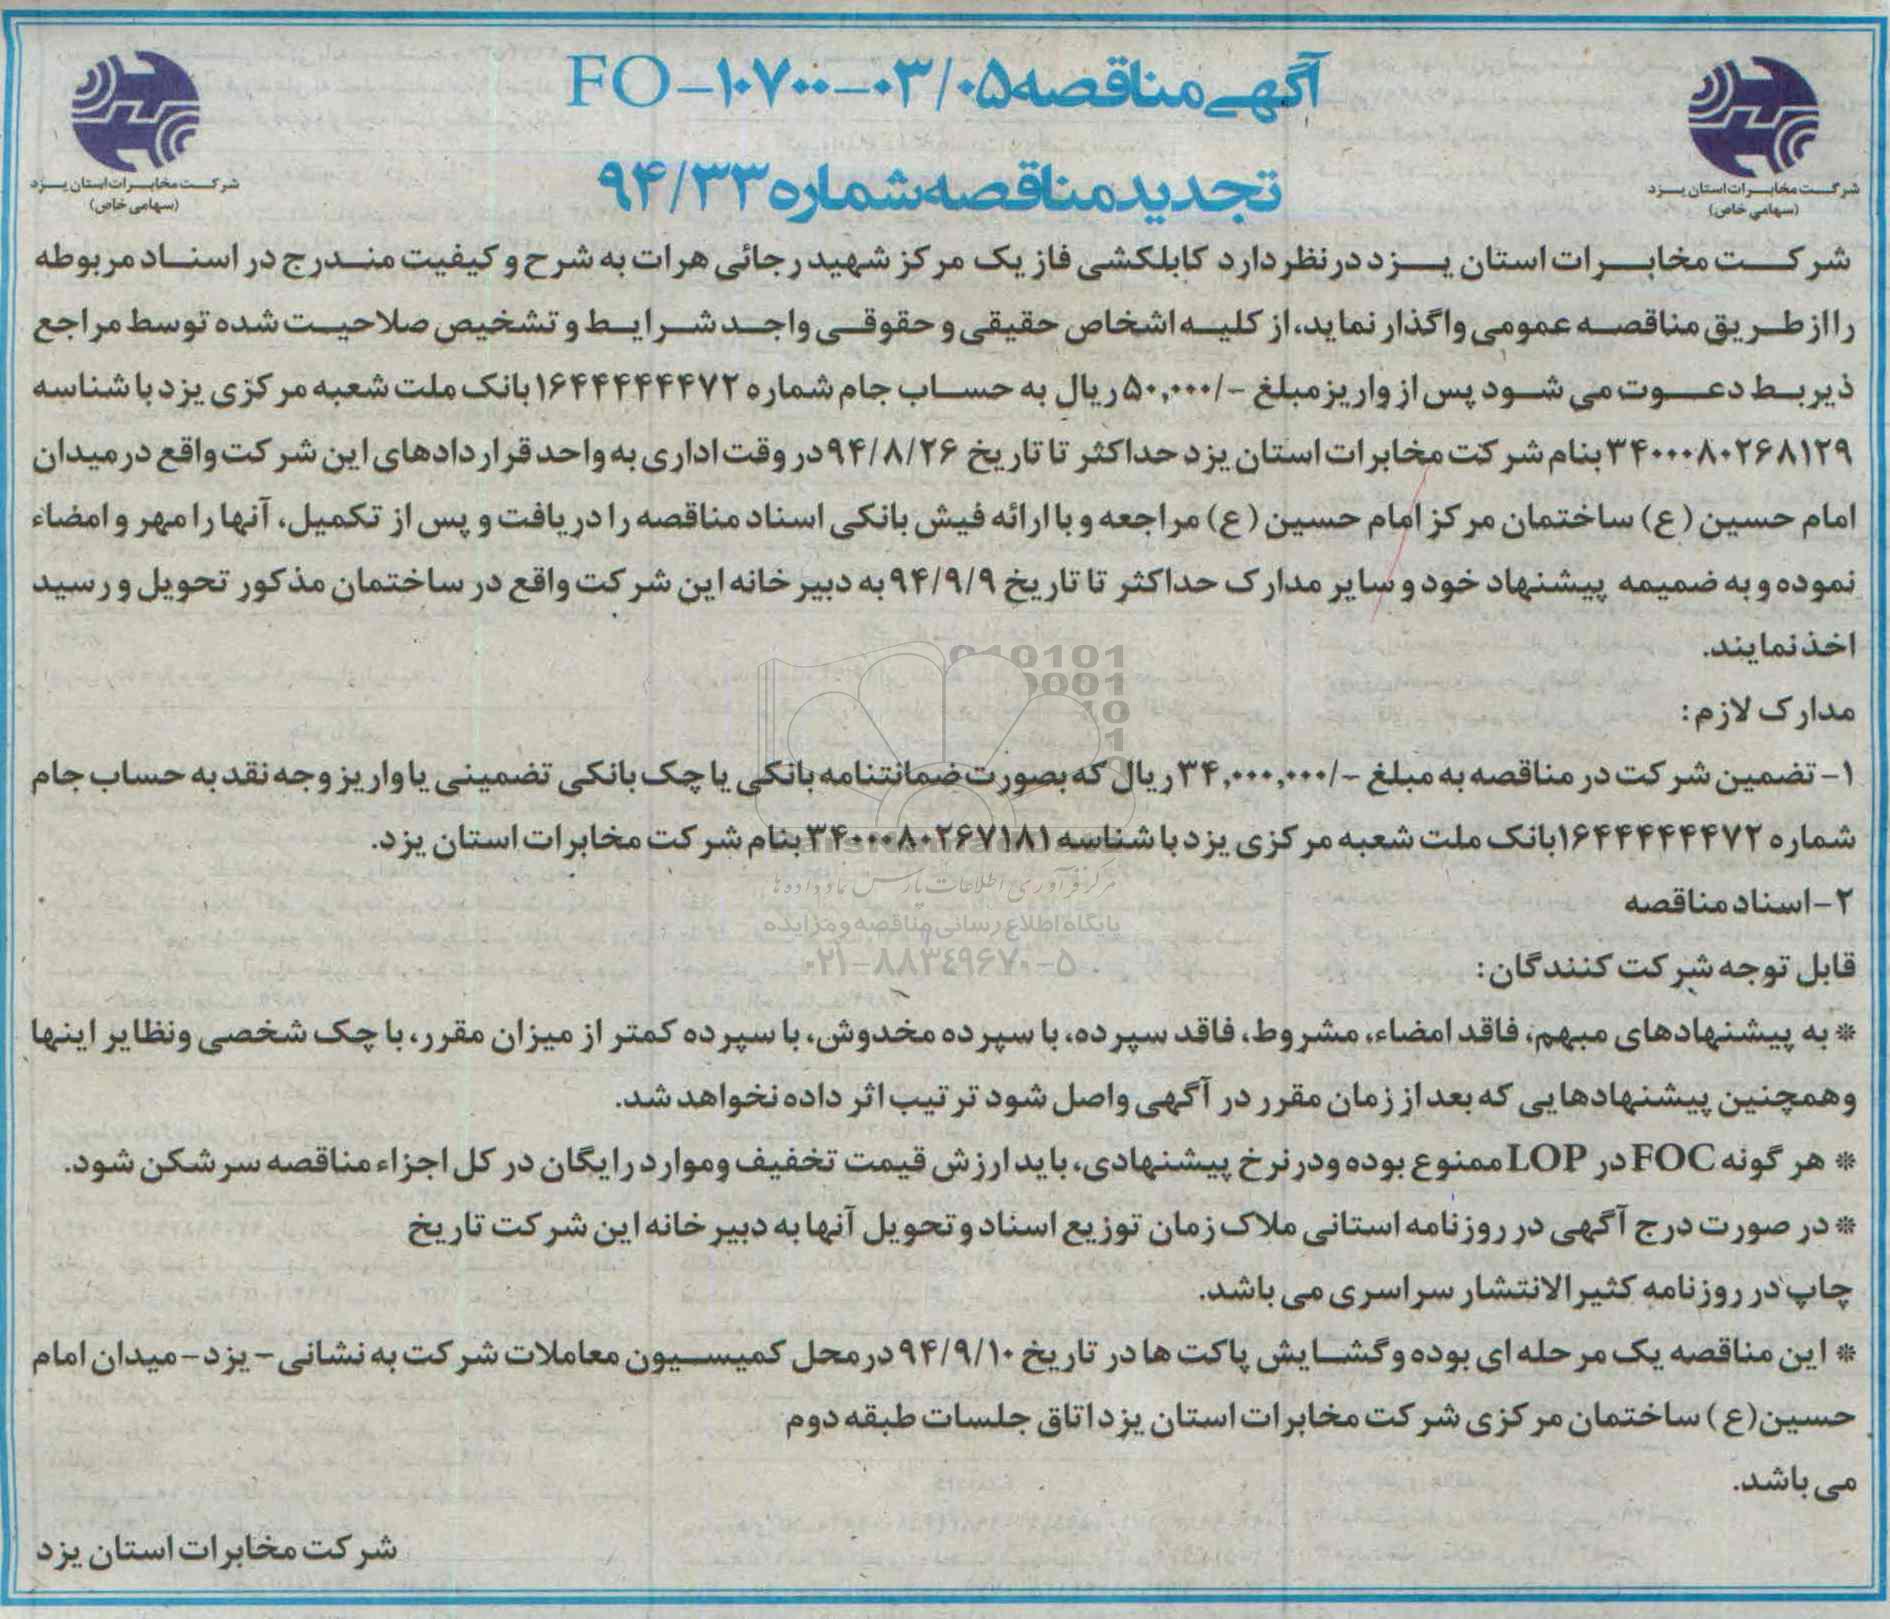 آگهی مناقصه ۰۳/۰۵-۱۰۷۰۰-FO
تجدید مناقصه شماره ۹۴/۳۳
شرکت مخابرات استان یزد
(سهامی خاص)
شرکت مخابرات استان یزد
(سهامی خاص)
شرکت مخابرات استان یزد درنظر دارد کابلکشی فاز یک مرکز شهید رجائی هرات به شرح و کیفیت مندرج در اسناد مربوطه
را از طریق مناقصه عمومی واگذار نماید، از کلیه اشخاص حقیقی و حقوقی واجد شرایط و تشخیص صلاحیت شده توسط مراجع
ذیربط دعوت می شود پس از واریز مبلغ -/۵۰,۰۰۰ ریال به حساب جام شماره ۱۶۴۴۴۴۴۴۷۲ بانک ملت شعبه مرکزی یزد با شناسه
۳۴۰۰۰۸۰۲۶۸۱۲۹ بنام شرکت مخابرات استان یزد حداکثر تا تاریخ ۹۴/۸/۲۶ در وقت اداری به واحد قراردادهای این شرکت واقع در میدان
امام حسین (ع) ساختمان مرکز امام حسین (ع) مراجعه و با ارائه فیش بانکی اسناد مناقصه را دریافت و پس از تکمیل، آنها را مهر و امضاء
نموده و به ضمیمه پیشنهاد خود و سایر مدارک حداکثر تا تاریخ ۹۴/۹/۹ به دبیرخانه این شرکت واقع در ساختمان مذکور تحویل و رسید
اخذ نمایند.
مدارک لازم:
۱- تضمین شرکت در مناقصه به مبلغ -/۳۴,۰۰۰,۰۰۰ ریال که بصورت ضمانتنامه بانکی یا چک بانکی تضمینی یا واریز وجه نقد به حساب جام
شماره ۱۶۴۴۴۴۴۴۷۲ بانک ملت شعبه مرکزی یزد با شناسه ۳۴۰۰۰۸۰۲۶۷۱۸۱ بنام شرکت مخابرات استان یزد.
مرکز فرآوری اطلاعات پارس نماد داده ها
۲- اسناد مناقصه
پایگاه اطلاع رسانی مناقصه و مزایده
۰۲۱-۸۸۳۴۹۶۷۰-۵
قابل توجه شرکت کنندگان:
* به پیشنهادهای مبهم، فاقد امضاء، مشروط، فاقد سپرده، با سپرده مخدوش، با سپرده کمتر از میزان مقرر، با چک شخصی ونظایر اینها
وهمچنین پیشنهادهایی که بعد از زمان مقرر در آگهی واصل شود ترتیب اثر داده نخواهد شد.
* هر گونه FOC در LOP ممنوع بوده ودرنرخ پیشنهادی، باید ارزش قیمت تخفیف وموارد رایگان در کل اجزاء مناقصه سرشکن شود.
* در صورت درج آگهی در روزنامه استانی ملاک زمان توزیع اسناد و تحویل آنها به دبیرخانه این شرکت تاریخ
چاپ در روزنامه کثیرالانتشار سراسری می باشد.
* این مناقصه یک مرحله ای بوده و گشایش پاکت ها در تاریخ ۹۴/۹/۱۰ درمحل کمیسیون معاملات شرکت به نشانی - یزد- میدان امام
حسین(ع) ساختمان مرکزی شرکت مخابرات استان یزد اتاق جلسات طبقه دوم
می باشد.
شرکت مخابرات استان یزد